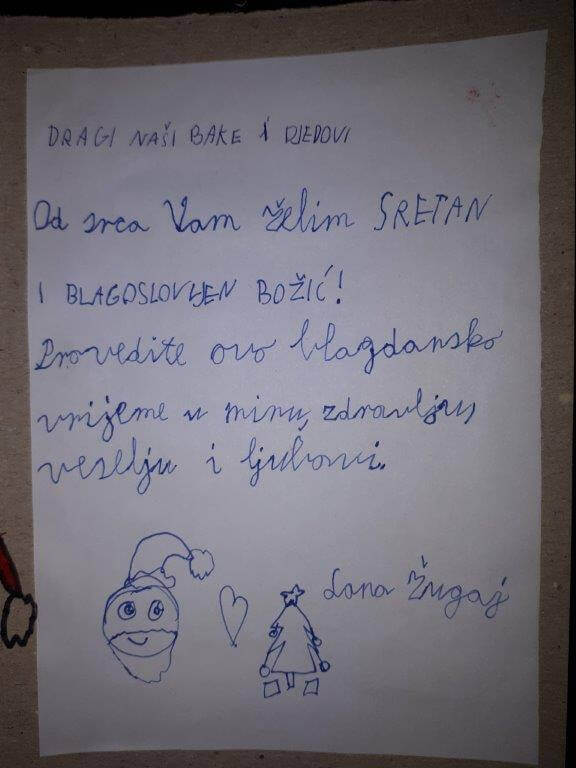 DRAGI NAŠI BAKE I DJEDOVI
Od srca Vam želim SRETAN
I BLAGOSLOVLJEN BOŽIĆ!
Provedite ovo blagdansko
vrijeme u miru, zdravlju,
veselju i ljubavi.
Lana Žugaj